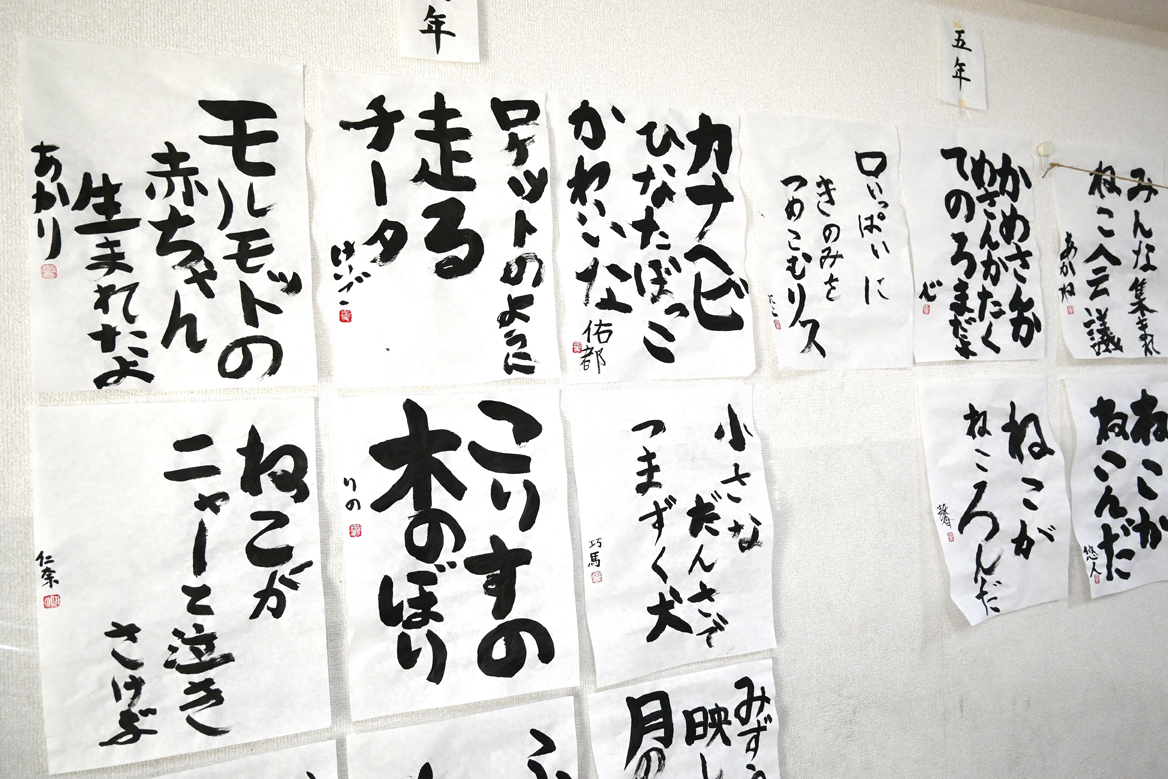 年
五年
モルモットの
赤ちゃん
生まれたよ
あかり
ロケットのように
走る
チータ
カナヘビ
ひなたぼっこ
かわいいな
佑都
口いっぱいに
きのみを
つめこむリス
かめさんが
てのろまだよ
心
みんな集まれ
ねこ会議
あかね
ねこが
ニャーと泣き
さけぶ
仁奈
こりすの
木のぼり
りの
小さな
だんさで
つまずく犬
巧馬
ねこが
ねころんだ
ねこが
ねこんだ
悠人
みずう
映し
月の